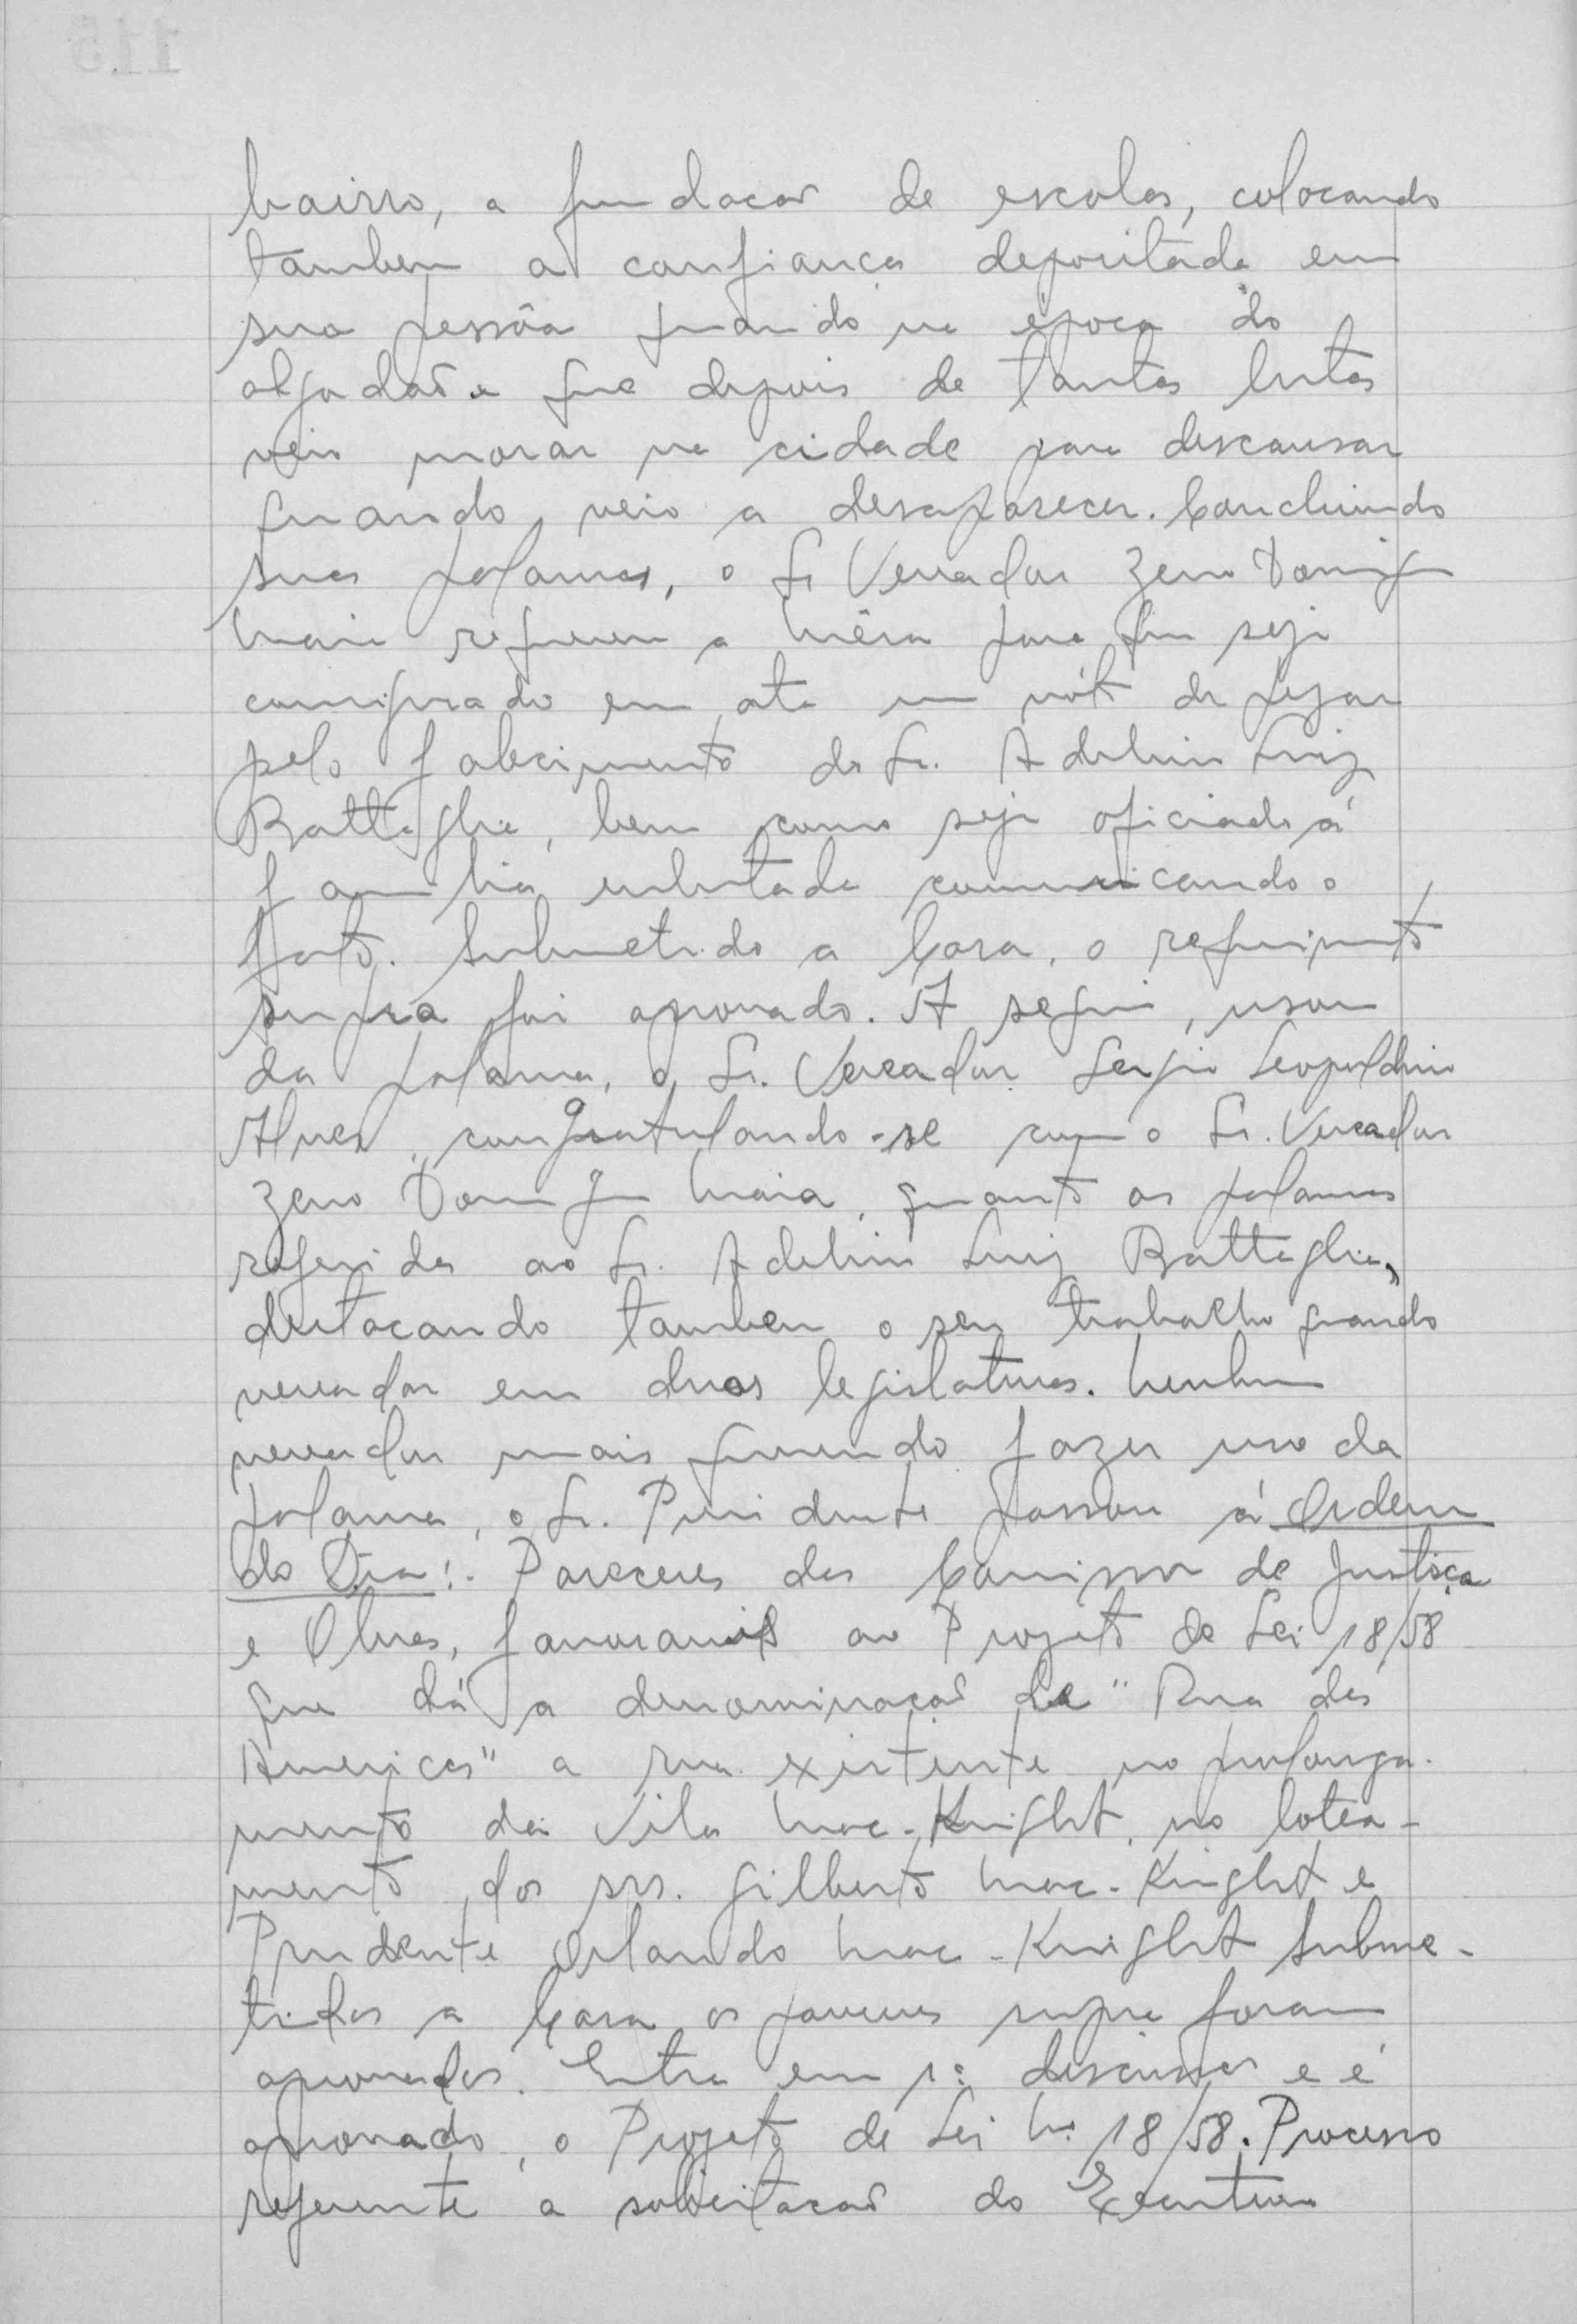 bairro, a fundacão de escolas, colocando
tambem a confiança depositada em
sua pessôa quando na época do
algodão e que depois de tantas lutas
veio morar na cidade para descansar
quando veio a desaparecer. Concluindo
suas palavras, o Sr Vereador Zeno Domingues
Maia requereu a Mêsa para que seja
consignado em ata um vóto de pezar
pelo falecimento do Sr. Adelino Luiz
Battaglia, bem como seja oficiado á
familia enlutada comunicando o
fato. Submetido a Casa, o requerimento
supra foi aprovado. A seguir, usou
da palavra, o Sr. Vereador Sergio Leopoldino
Alves, congratulando-se com o Sr. Vereador
Zeno Domingues Maia, quanto as palavras
referidas ao Sr. Adelino Luiz Battaglia,
destacando tambem o seu trabalho quando
vereador em duas legislaturas. Nenhum
vereador mais querendo fazer uso da
palavra, o Sr. Presidente passou á Ordem
do Dia:. Pareceres das Comissões de Justiça
e Obras, favoraveis ao Projeto de Lei 18/58
que dá a denominacão de "Rua das
Americas" a rua existente no prolonga-
mento da Vila Mac-Knight, no lotea-
mento dos srs. Gilberto Mac-Knight e
Prudente Orlando Mac-Knight Subme-
tidos a Casa os pareceres supra foram
aprovados. Entra em 1ª discussão e é
aprovado, o Projeto de Lei Nº 18/58. Processo
referente a solicitacão do Executivo